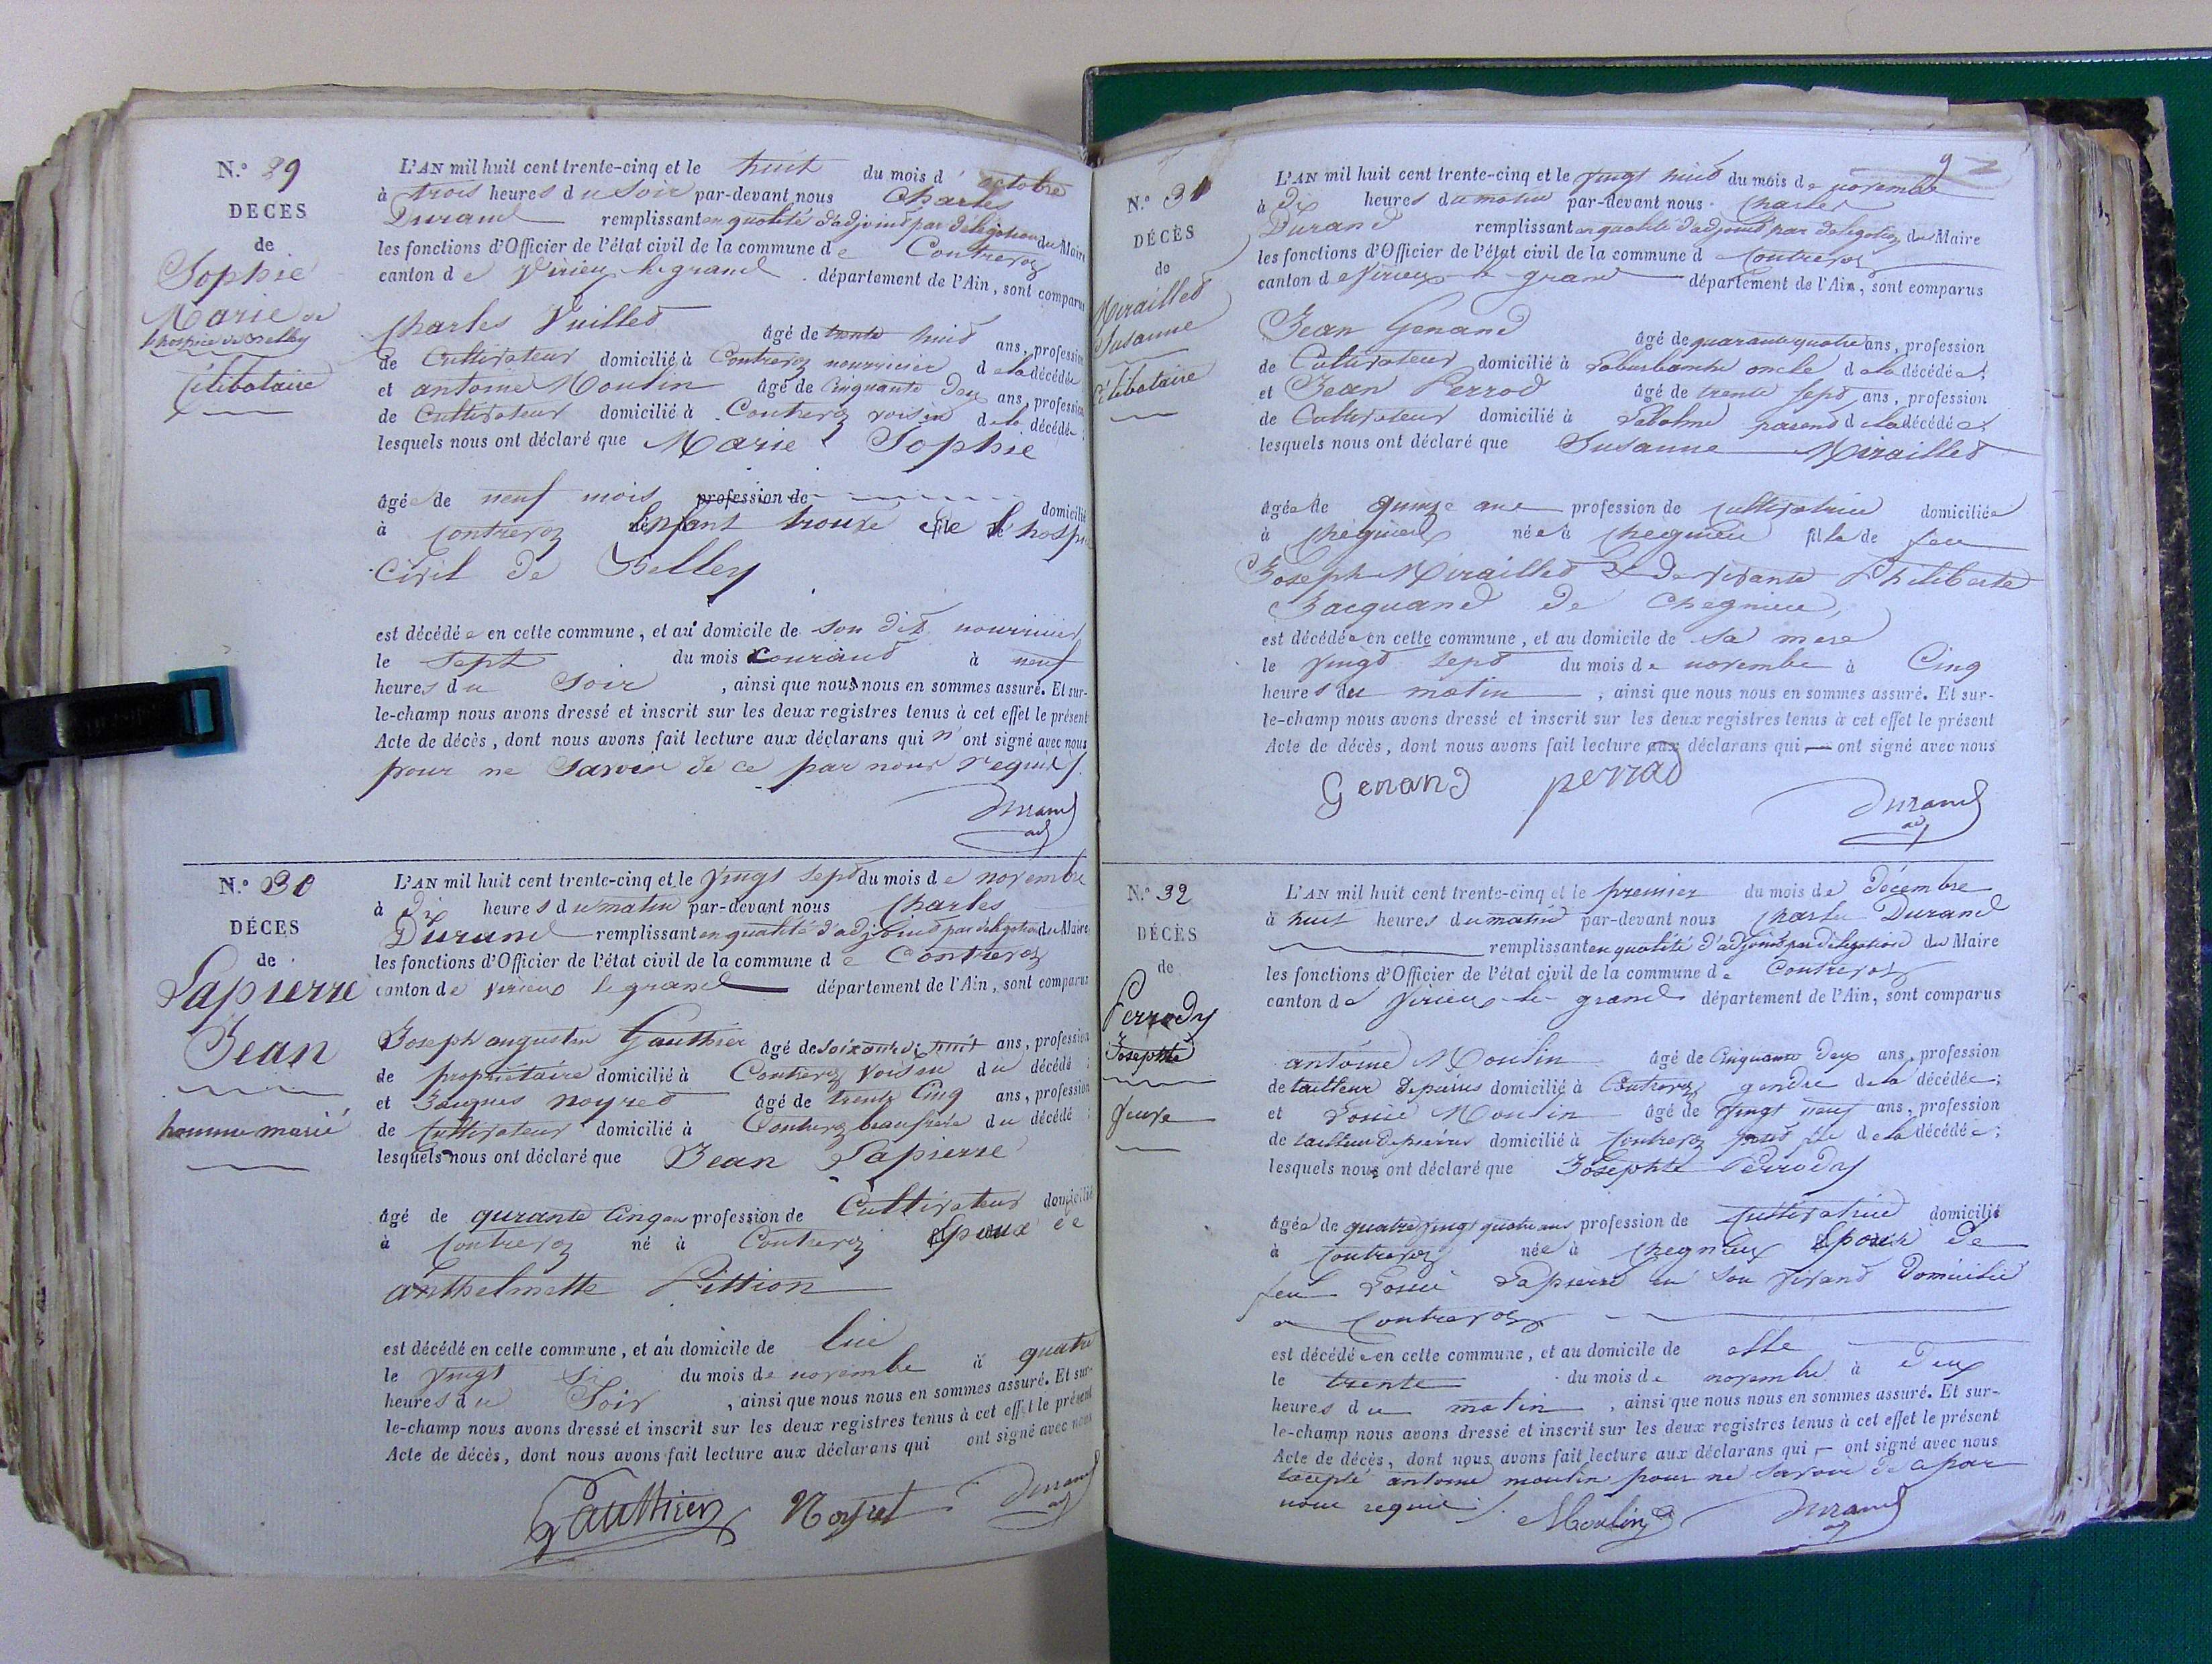 N.° 29
DECES
de
Sophie
Marie de
l'hospice de Belley
Célibataire
L'AN mil huit cent trente-cinq et le huit du mois d'octobre
à trois heures du Soir par-devant nous Charles
Durand remplissant en qualité d'adjoint par délégation du Maire
les fonctions d'Officier de l'état civil de la commune de Contrevoz
canton de Virieu le grand département de l'Ain, sont comparus
Charles Vuilled âgé de trente huit ans, profession
de Cultivateur domicilié à Contrevoz nourricier de la décédée
et antoine Moulin âgé de Cinquante deux ans, profession
de Cultivateur domicilié à Contrevoz voisin de la décédée;
lesquels nous ont déclaré que Marie Sophie
âgée de neuf mois profession de domicilié
à Contrevoz enfant trouvé de l'hospice
Civil de Belley
est décédée en cette commune, et au domicile de son dit nourricier
le Sept du mois Courand à neuf
heures du Soir, ainsi que nous nous en sommes assuré. Et sur-
le-champ nous avons dressé et inscrit sur les deux registres tenus à cet effet le présent
Acte de décès, dont nous avons fait lecture aux déclarans qui n'ont signé avec nous
pour ne Savoir de ce par nous requis /.
Durand
adj
N.° 30
DÉCES
de
Lapierre
Jean
homme marié
L'AN mil huit cent trente-cinq et le vingt sept du mois de novembre
à dix heures du matin par-devant nous Charles
Durand remplissant en qualité d'adjoint par délégation du Maire
les fonctions d'Officier de l'état civil de la commune de Contrevoz
canton de Virieux le grand département de l'Ain, sont comparus
Joseph augustin Gauthier âgé de soixante dix huit ans, profession
de propriétaire domicilié à Contrevoz Voisin du décédé;
et Jacques noyred âgé de trente Cinq ans, profession
de Cultivateur domicilié à Contrevoz beaufrère du décédé;
lesquels nous ont déclaré que Jean Lapierre
âgé de qurante Cinq ans profession de Cultivateur domicilié
à Contrevoz né à Contrevoz Epoux de
anthelmette Pittion
est décédé en cette commune, et au domicile de lui
le vingt Six du mois de novembre à quatre
heures du Soir, ainsi que nous nous en sommes assuré. Et sur-
le-champ nous avons dressé et inscrit sur les deux registres tenus à cet effet le présent
Acte de décès, dont nous avons fait lecture aux déclarans qui ont signé avec nous
Gauthier Noyret Durand
adj
92
N.° 31
DÉCÈS
de
Mirailled
Susanne
Célibataire
L'AN mil huit cent trente-cinq et le vingt huid du mois de novembre
à dix heures du matin par-devant nous Charles
Durand remplissant en qualité d'adjoint par délégation du Maire
les fonctions d'Officier de l'état civil de la commune de Contrevoz
canton de Virieux le grand département de l'Ain, sont comparus
Jean Genand âgé de quarante quatre ans, profession
de Cultivateur domicilié à oncle de la décédée;
et Jean Perrod âgé de trente Sept ans, profession
de Cultivateur domicilié à parend de la décédée;
lesquels nous ont déclaré que Susanne Mirailled
âgée de quinze ans profession de Cultivatrice domiciliée
à Chegnieux née à Chegnieu fille de feu
Joseph Mirailled & de vivante Philiberte
Jacquand de Chegnieu,
est décédée en cette commune, et au domicile de sa mere
le vingt Sept du mois de novembre à Cinq
heures du matin, ainsi que nous nous en sommes assuré. Et sur-
le-champ nous avons dressé et inscrit sur les deux registres tenus à cet effet le présent
Acte de décès, dont nous avons fait lecture aux déclarans qui ont signé avec nous
Genand perrad Durand
adj
N.° 32
DÉCÈS
de
Perrody
Josephte
Veuve
L'AN mil huit cent trente-cinq et le premier du mois de décembre
à huit heures du matin par-devant nous Charles Durand
remplissant en qualité d'adjoint par délégation du Maire
les fonctions d'Officier de l'état civil de la commune de Contrevoz
canton de Virieux le grand département de l'Ain, sont comparus
antoine Moulin âgé de Cinquante deux ans, profession
de tailleur de pierres domicilié à Contrevoz gendre de la décédée;
et Moulin âgé de vingt neuf ans, profession
de tailleur de pierres domicilié à Contrevoz petit fils de la décédée;
lesquels nous ont déclaré que Josephte Perrody
âgée de quatre vingt quatre ans profession de Cultivatrice domicilié
à Contrevoz née à Chegnieux Epouse de
feu Lapierre en Son vivand domicilié
a Contrevoz
est décédée en cette commune, et au domicile de elle
le trente du mois de novembre à deux
heures du matin, ainsi que nous nous en sommes assuré. Et sur-
le-champ nous avons dressé et inscrit sur les deux registres tenus à cet effet le présent
Acte de décès, dont nous avons fait lecture aux déclarans qui ont signé avec nous
excepté antoine moulin pour ne Savoir de ce par
nous requis /. Moulin Durand